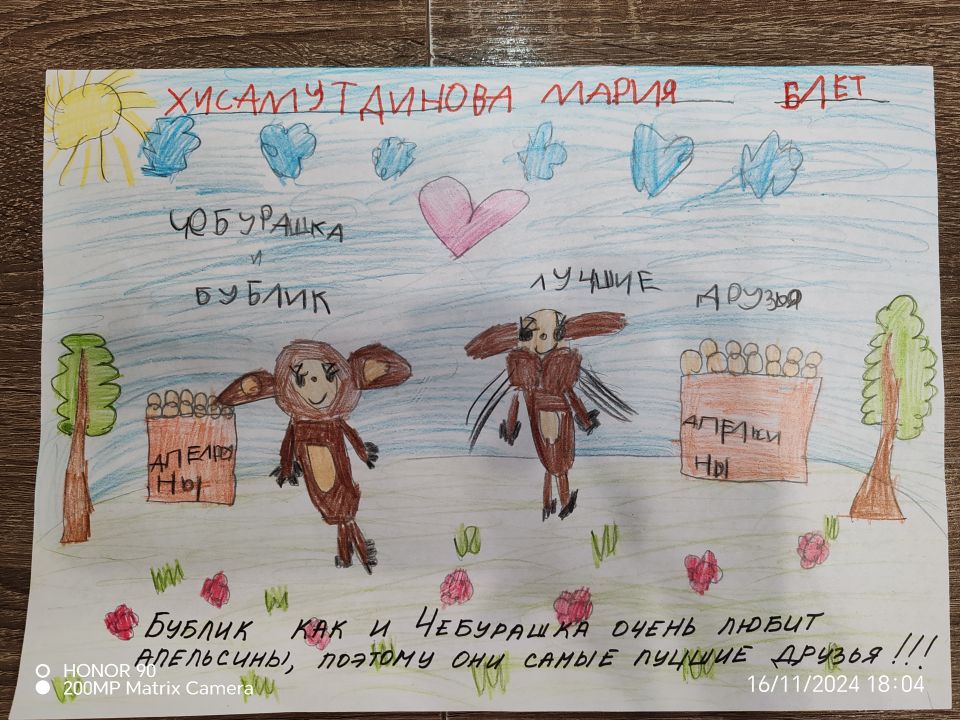 ХИСАМУТДИНОВА МАРИЯ 6ЛЕТ
ЧЕБУРАШКА
и
БУБЛИК
ЛУЧШИЕ ДРУЗЬЯ
НЫ
АПЕЛЬСИ
НЫ
Бублик как и Чебурашка очень любит
апельсины, поэтому они самые лучшие друзья!!!
HONOR 90
200MP Matrix Camera
16/11/2024 18:04